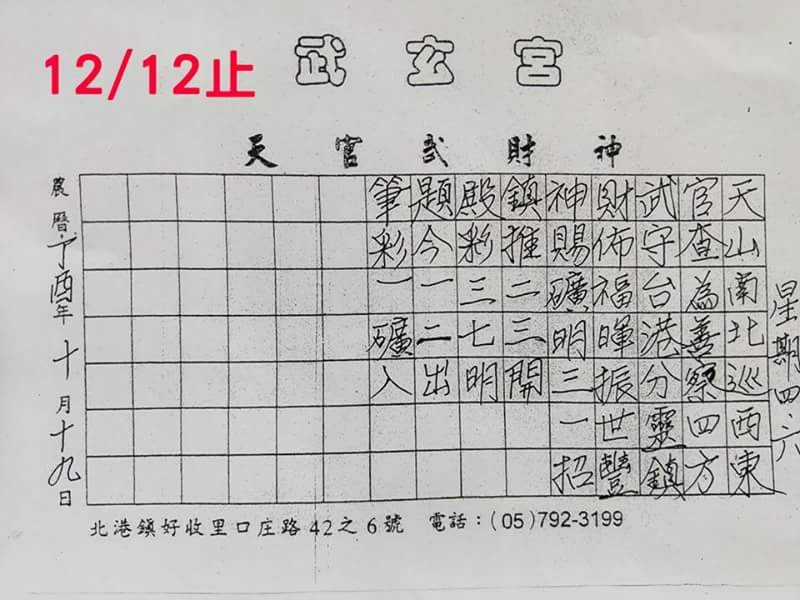 12/12止
武玄宮
天官武財神
星期四、六
天山南北巡西東
官查為善察四方
武守台港分靈鎮
財佈福暉振世豐
神賜礦明三一招
鎮推二三開
殿彩三七明
題今一二出
筆彩一礦入
農曆丁酉年十月十九日
北港鎮好收里口庄路42之6號 電話：(05)792-3199